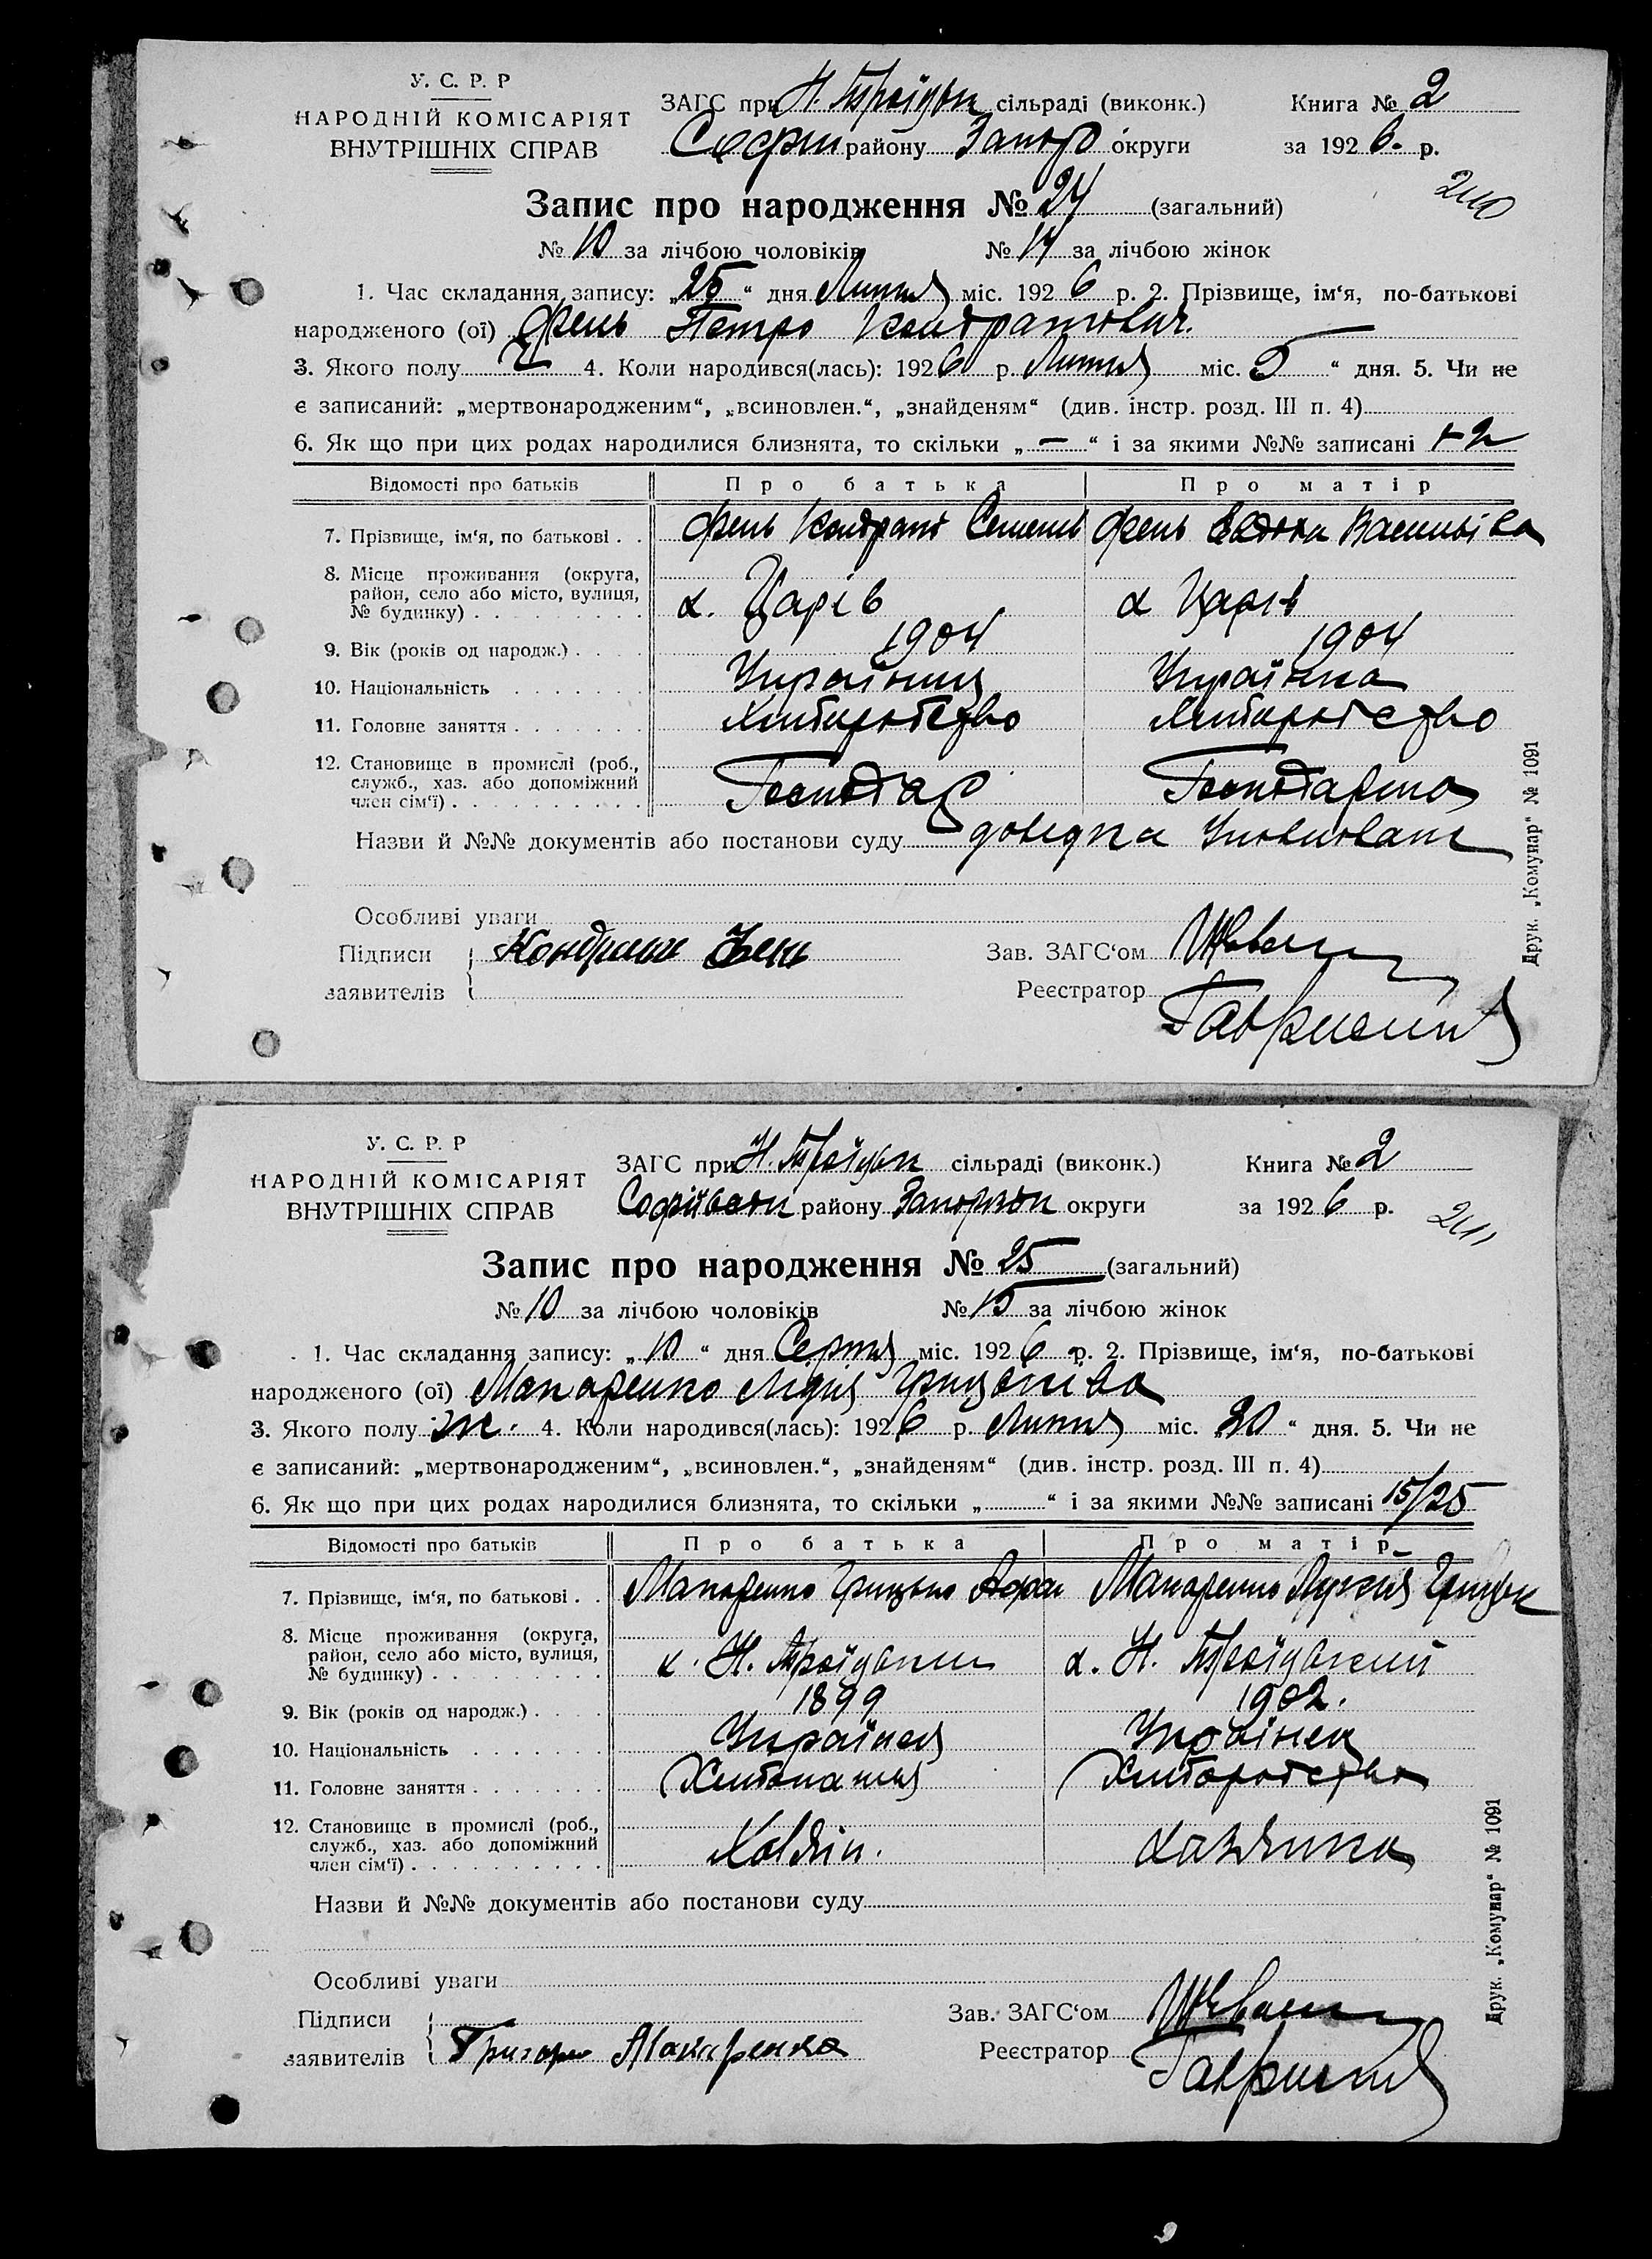 У. С. Р. Р
НАРОДНІЙ КОМІСАРІЯТ
ВНУТРІШНІХ СПРАВ
ЗАГС при Н. Троїцьк сільраді (виконк.) Книга № 2
Софіи району Запор округи за 1926. р.
Запис про народження № 24 (загальний)
№ 10 за лічбою чоловіків № 14 за лічбою жінок
1. Час складання запису: „25“ дня Липня міс. 1926 р. 2. Прізвище, ім‘я, по-батькові
народженого (ої) Фень Петро Кондратович.
3. Якого полу Ч 4. Коли народився(лась): 1926 р. Липня міс. 5 “ дня. 5. Чи не
є записаний: „мертвонародженим“, „всиновлен.“, „знайденям“ (див. інстр. розд. III п. 4)
6. Як що при цих родах народилися близнята, то скільки „—“ і за якими №№ записані
Відомості про батьків Про батька Про матір
7. Прізвище, ім‘я, по батькові . . Фень Кондрат Семенів Фень Евдокія Василівна
8. Місце проживання (округа,
район, село або місто, вулиця,
№ будинку) х. Царів х Царів
9. Вік (років од народж.) 1904 1904
10. Національність Українець Українка
11. Головне заняття Хліборобство Хліборобство
12. Становище в промислі (роб.,
служб., хаз. або допоміжний
член сім‘ї) Господар Господарка
Назви й №№ документів або постанови суду довідка
Особливі уваги
Підписи Кондрат Фень Зав. ЗАГС‘ом
заявителів Реєстратор
Друк. „Комунар“ № 1091
У. С. Р. Р
НАРОДНІЙ КОМІСАРІЯТ
ВНУТРІШНІХ СПРАВ
ЗАГС при Н. Троїцьк сільраді (виконк.) Книга № 2
Софіївськ району Запорізьк округи за 1926 р.
Запис про народження № 25 (загальний)
№ 10 за лічбою чоловіків № 15 за лічбою жінок
1. Час складання запису: „10“ дня Серпня міс. 1926 р. 2. Прізвище, ім‘я, по-батькові
народженого (ої) Макаренко Лідія Грицьківна
3. Якого полу ж. 4. Коли народився(лась): 1926 р. Липня міс. 30 “ дня. 5. Чи не
є записаний: „мертвонародженим“, „всиновлен.“, „знайденям“ (див. інстр. розд. III п. 4)
6. Як що при цих родах народилися близнята, то скільки „ “ і за якими №№ записані 15/25
Відомості про батьків Про батька Про матір
7. Прізвище, ім‘я, по батькові . . Макаренко Грицько Макаренко
8. Місце проживання (округа,
район, село або місто, вулиця,
№ будинку) х. Н. Троїцький х. Н. Троїцький
9. Вік (років од народж.) 1899 1902.
10. Національність Українець Українка
11. Головне заняття Хліборобство
12. Становище в промислі (роб.,
служб., хаз. або допоміжний
член сім‘ї) Хазяїн. Хазяйка
Назви й №№ документів або постанови суду
Особливі уваги
Підписи Зав. ЗАГС‘ом
заявителів Григорий Макаренко Реєстратор
Друк. „Комунар“ № 1091